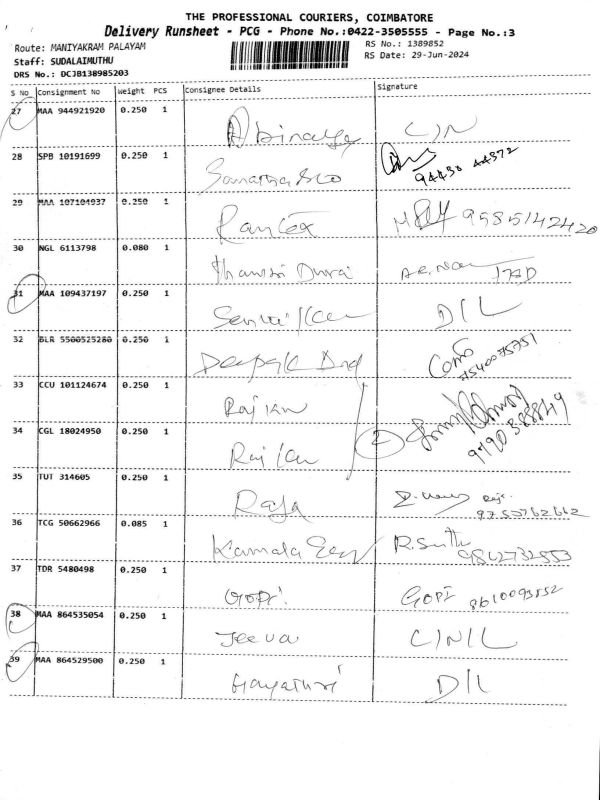 THE PROFESSIONAL COURIERS, COIMBATORE
Delivery Runsheet - PCG - Phone No.:0422-3505555 - Page No.:3
Route: MANIYAKRAM PALAYAM
RS No.: 1389852
Staff: SUDALAIMUTHU
RS Date: 29-Jun-2024
DRS No.: DCJB138985203
S No Consignment No Weight PCS Consignee Details Signature
27 MAA 944921920 0.250 1
28 SPB 10191699 0.250 1
94430 44372
29 MAA 107104937 0.250 1
9585142420
30 NGL 6113798 0.080 1
31 MAA 109437197 0.250 1
D/L
32 BLR 5500525280 0.250 1
Deepak
7540075751
33 CCU 101124674 0.250 1
Raj Kw
34 CGL 18024950 0.250 1
2
9790388849
35 TUT 314605 0.250 1
Raja
36 TCG 50662966 0.085 1
Kamala
37 TDR 5480498 0.250 1
Gopi. GOPI
38 MAA 864535054 0.250 1
Jeeva C/N/L
39 MAA 864529500 0.250 1
Gayathri D/L